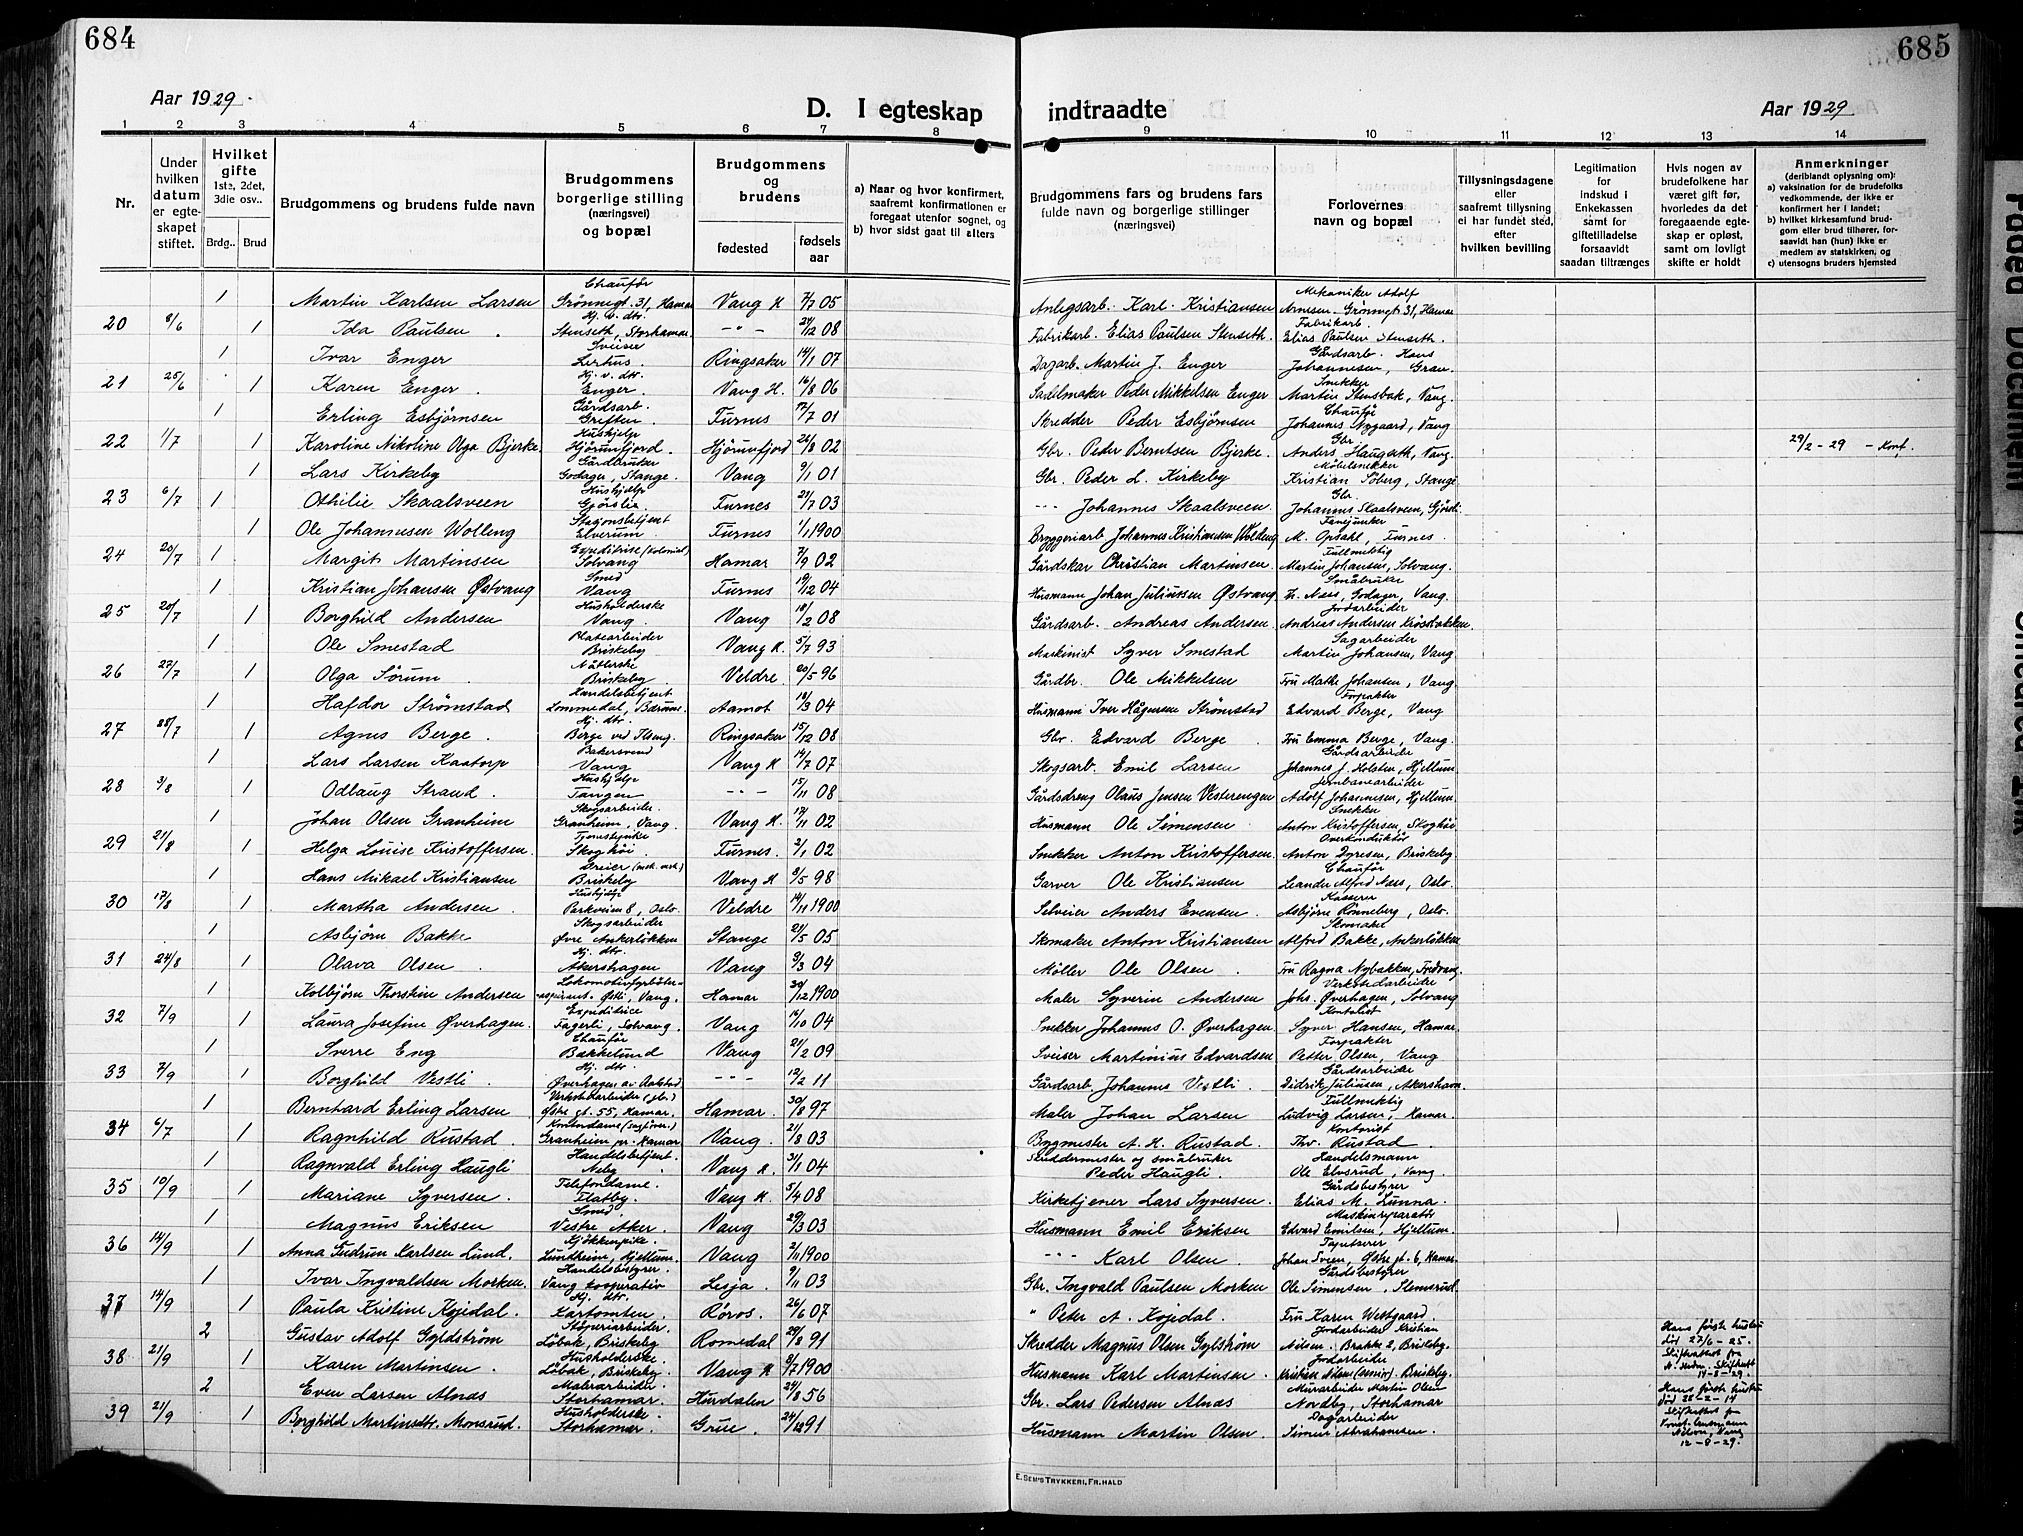 684
685
Aar 1929.
D. I egteskap
indtraadte
Aar 1929
1 2 3 4 5 6 7 8 9 10 11 12 13 14
Nr.
Under hvilken datum er egteskapet stiftet.
Hvilket gifte 1ste, 2det, 3die osv..
Brdg.. Brud
Brudgommens og brudens fulde navn
Brudgommens borgerlige stilling (næringsvei) og bopæl
Brudgommens og brudens
fødested fødsels aar
a) Naar og hvor konfirmert, saafremt konfirmationen er foregaat utenfor sognet, og
b) hvor sidst gaat til alters
Brudgommens fars og brudens fars fulde navn og borgerlige stillinger (næringsvei)
Forlovernes navn og bopæl
Tillysningsdagene eller saafremt tillysning ei har fundet sted, efter hvilken bevilling
Legitimation for indskud i Enkekassen samt for giftetilladelse forsaavidt saadan tiltrænges
Hvis nogen av brudefolkene har været gift før, hvorledes da det foregaaende egteskap er opløst, samt om lovligt skifte er holdt
Anmerkninger (deriblandt oplysning om):
a) vaksination for de brudefolks vedkommende, der ikke er konfirmert her i landet;
b) hvilket kirkesamfund brudgom eller brud tilhører, forsaavidt han (hun) ikke er medlem av statskirken, og
c) utensogns bruders hjemsted
1 Martin Karlsen Larsen Chauffør Grønnegt. 31, Hamar Vang H 7/7 05 Anlegsarb. Karl Kristiansen Mekaniker Adolf Arnesen Grønnegt 31, Hamar
20 8/6 1 Ida Paulsen Hj. v. dtr. Stenseth, Storhamar 24/12 08 Fabrikarb. Elias Paulsen Stenseth Fabrikarb. Elias Paulsen Stenseth.
1 Ivar Enger Sveiser Lerhus Ringsaker 14/1 07 Dagarb. Martin J. Enger Gårdsarb. Hans Johannesen, Gran
21 25/6 1 Karen Enger Hj. v. dtr. Enger Vang H. 16/8 06 Sadelmaker Peder Mikkelsen Enger Snekker Martin Stensbak, Vang.
1 Erling Esbjørnsen Gårdsarb. Griften Furnes 17/7 01 Skredder Peder Esbjørnsen Chauffør Johannes Nygaard, Vang
22 1/7 1 Karoline Nikoline Olga Bjerke Hushjelp Hjørunfjord Hjørunfjord 26/8 02 Gbr. Peder Berntsen Bjerke Gbr. Anders Haugseth, Vang 29/2-29 - Konf.
1 Lars Kirkeby Gårdbruker Godager, Stange Vang 9/1 01 Gbr. Peder L. Kirkeby Møbelsnekker Kristian Søberg, Stange
23 6/7 1 Othilie Skaalsveen Hushjelp Gjørslia Furnes 21/7 03 Johannes Skaalsveen Gbr. Johannes Skaalsveen, Gjørsli
1 Ole Johannesen Wolleng Stasjonsbetjent Elverum Furnes 1/1 1900 Bryggeriarb Johannes Kristiansen Woldeng Fanejunker M. Opsahl, Furnes
24 20/7 1 Margit Martinsen Expeditrise (kolonial) Solvang Hamar 7/9 02 Gårdskar Christian Martinsen Fullmektig Martin Johansen, Solvang.
1 Kristian Johansen Østvang Smed Vang Furnes 19/12 04 Husmann Johan Juliussen Østvang Småbruker H. Næss, Godager, Vang.
25 20/7 1 Borghild Andersen Husholderske Vang Vang 18/2 08 Gårdsarb. Andreas Andersen Jordarbeider Andreas Andersen
1 Ole Smestad Platearbeider Briskeby Vang H. 5/7 93 Maskinist Syver Smestad Sagarbeider Martin Johansen, Vang
26 27/7 1 Olga Sørum Briskeby Veldre 20/5 96 Gårdbr. Ole Mikkelsen Fru Mathe Johansen, Vang.
1 Hafdor Strømstad Handelsbetjent Lommedal, Bærum Aamot 18/3 04 Husmann Iver Hågensen Strømstad Forpakter Edvard Berge, Vang
27 28/7 1 Agnes Berge Hj. dtr. Berge ved Ilseng. Ringsaker 15/12 08 Gbr. Edvard Berge Fru Emma Berge, Vang.
1 Lars Larsen Kastorp Bakersvend Vang Vang H 14/7 07 Skogsarb. Emil Larsen Gårdsarbeider Johannes J. Holsten, Hjellum
28 3/8 1 Odlaug Strand Hushjelp Tangen 15/11 08 Gårdsdreng Olaus Jensen Vesterengen Jernbanearbeider Adolf Johannesen, Hjellum
1 Johan Olsen Granheim Skogsarbeider Granheim, Vang. Vang H. 17/11 02 Husmann Ole Simensen Snekker Anton Kristoffersen, Skoghøi
29 21/8 1 Helga Louise Kristoffersen Tjenestepike Skoghøi Furnes 2/1 02 Snekker Anton Kristoffersen Overkonduktør Anton Dyresen, Briskeby.
1 Hans Mikael Kristiansen Dreier (mek. verk.) Briskeby Vang H 9/5 98 Garver Ole Kristiansen Chauffør Leander Alfred Næss, Oslo.
30 17/8 1 Martha Andersen Hushjelp Parkveien 8, Oslo. Veldre 14/11 1900 Selveier Anders Evensen Kasserer Asbjørn Rønneberg, Oslo.
1 Asbjørn Bakke Skogsarbeider Øvre Ankerløkken Stange 21/5 05 Skomaker Anton Kristiansen Skomaker Alfred Bakke, Ankerløkken
31 24/8 1 Olava Olsen Hj. dtr. Akershagen Vang 9/3 04 Møller Ole Olsen Fru Ragna Nybakken, Fredvang.
1 Kolbjørn Thorstein Andersen Lokomotivfyrbøteraspirant. Østli, Vang. Hamar 30/12 1900 Maler Syverin Andersen Verkstedarbeider Johs. Øverhagen, Solvang
32 7/9 1 Laura Josefine Øverhagen Expeditrice Fagerli, Solvang. Vang 16/10 04 Snekker Johannes O. Øverhagen Kontorist Syver Hansen, Hamar.
1 Sverre Eng Chauffør Bakkelund Vang 21/2 09 Sveiser Martinius Edvardsen Forpakter Petter Olsen, Vang
33 7/9 1 Borghild Vestli Hj. dtr. Øverhagen av Aalstad 12/2 11 Gårdsarb. Johannes Vestli Gårdsarbeider Didrik Juliussen, Akershavn.
1 Bernhard Erling Larsen Verkstedarbeider Østre gt. 55, Hamar. Hamar. 30/8 97 Maler Johan Larsen Fullmektig Ludvig Larsen, Hamar.
34 6/7 1 Ragnhild Rustad Kontordame (sagfører.) Granheim pr. Hamar Vang. 21/8 03 Bygmester A. H. Rustad Kontorist Thv. Rustad
1 Ragnvald Erling Haugli Handelsbetjent Aaby Vang H. 31/1 04 Skreddermester og småbruker Peder Haugli Handelsmann Ole Elvsrud, Vang.
35 10/9 1 Mariane Syversen Telefondame Flatby. Vang H. 5/4 08 Kirketjener Lars Syversen Gårdsbestyrer Elias M. Lunna.
1 Magnus Eriksen Smed Vestre Aker Vang 29/3 03 Husmann Emil Eriksen Maskinreparatør Edvard Emilsen, Hjellum
36 14/9 1 Anna Gudrun Karlsen Lund Kjøkkenpike Lundheim, Hjellum. Vang 2/11 1900 Karl Olsen Tapetserer Johan Sveen, Østre gt. 6, Hamar
1 Ivar Ingvaldsen Morken Handelsbestyrer Vang kooperativ Lesja 9/11 03 Gbr. Ingvald Paulsen Morken Gårdsbestyrer Ole Simensen, Stensrud
37 14/9 1 Paula Kristine Kojedal Hj. dtr. Kartomten Røros. 26/6 07 " Peder A. Kojedal Fru Karen Westgaard.
2 Gustav Adolf Gyldstrøm Støperiarbeider. Løbak, Briskeby Romedal 29/8 91 Skredder Magnus Olsen Gylstrøm Jordarbeider Kristian Nilsen, Brakke 2, Briskeby. Hans første hustru død 27/6-25. Skifteattest fra N. Hedm. Skifterett 14-8-29.
38 21/9 1 Karen Martinsen Husholderske Løbak, Briskeby. Vang H 9/7 1900 Husmann Karl Martinsen Jordarbeider Kristian Nilsen (senior). Briskeby.
2 Even Larsen Alnæs Malerarbeider Storhamar Hurdalen 24/8 56 Gbr. Lars Pedersen Alnæs Murarbeider Martin Olsen Nordby, Storhamar Hans første hustru død 25-2-14 Skifteattest fra 12-8-29.
39 21/9 1 Borghild Martinsdtr. Monsrud Husholderske Storhamar. Grue 24/12 91 Husmann Martin Olsen Dagarbeider Simen Abrahamsen.
E. SEM'S TRYKKERI, FR.HALD